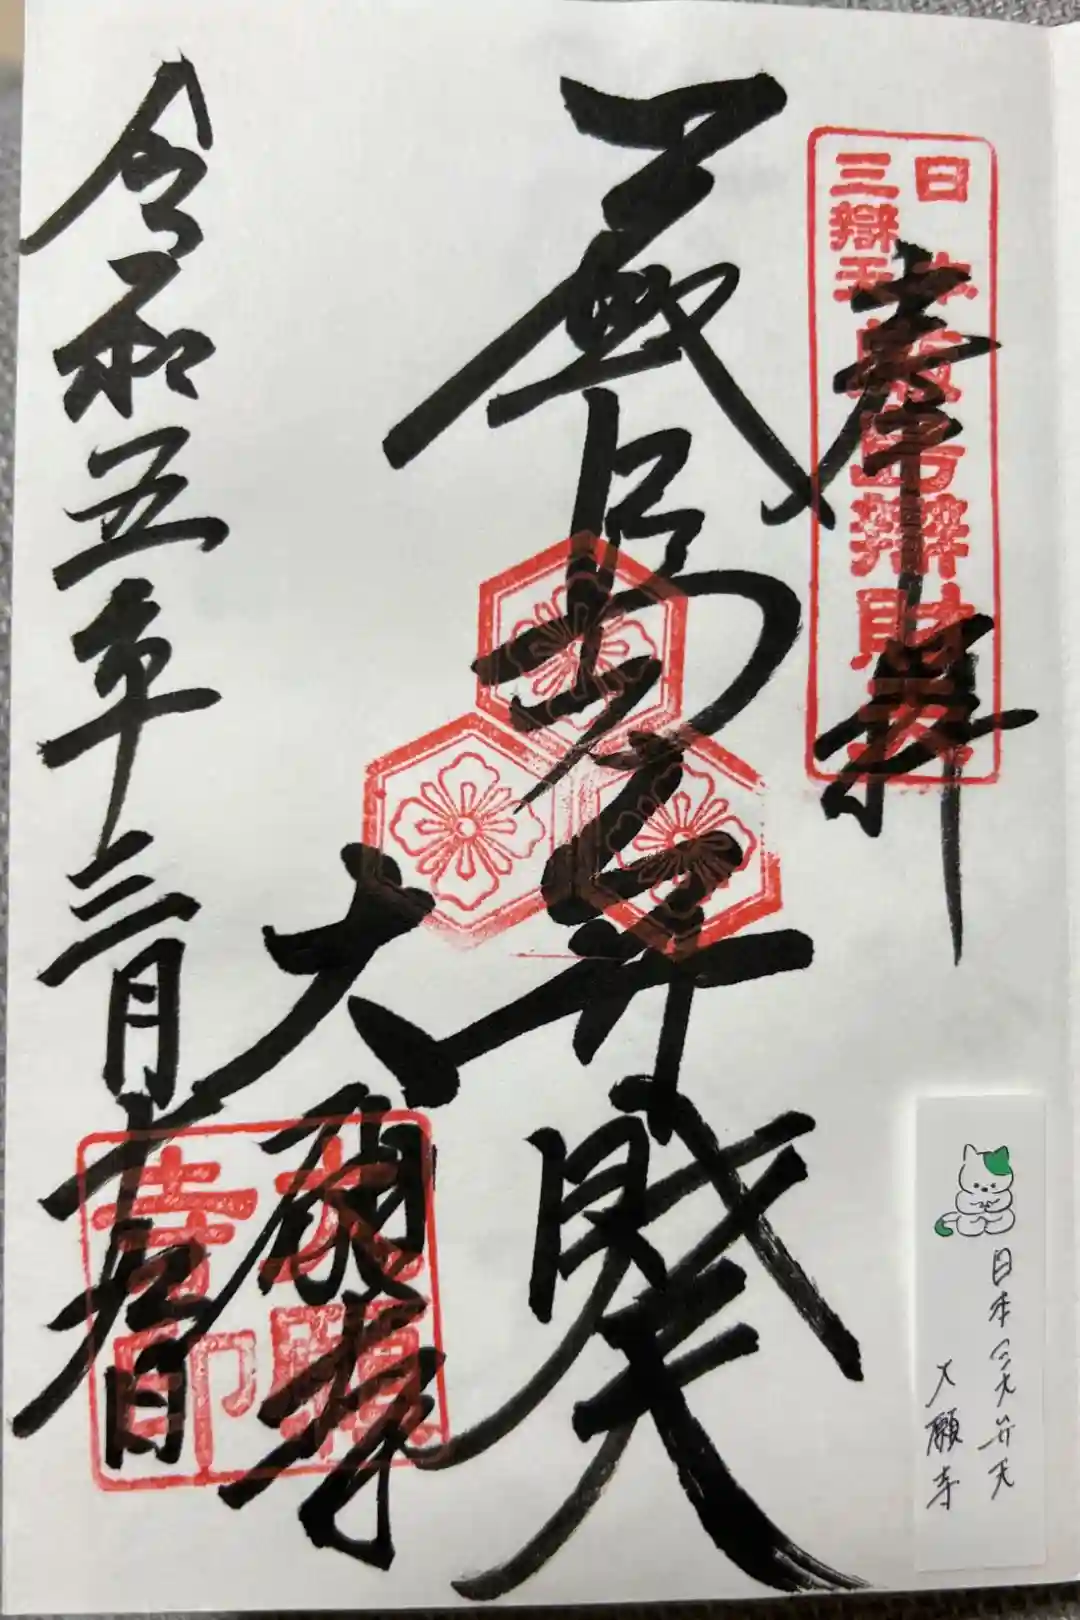 奉拝
日本
三辯天
厳島辯財天
厳島弁財天
大願寺
大願
寺印
令和五年三月十五日
日本三大弁天
大願寺